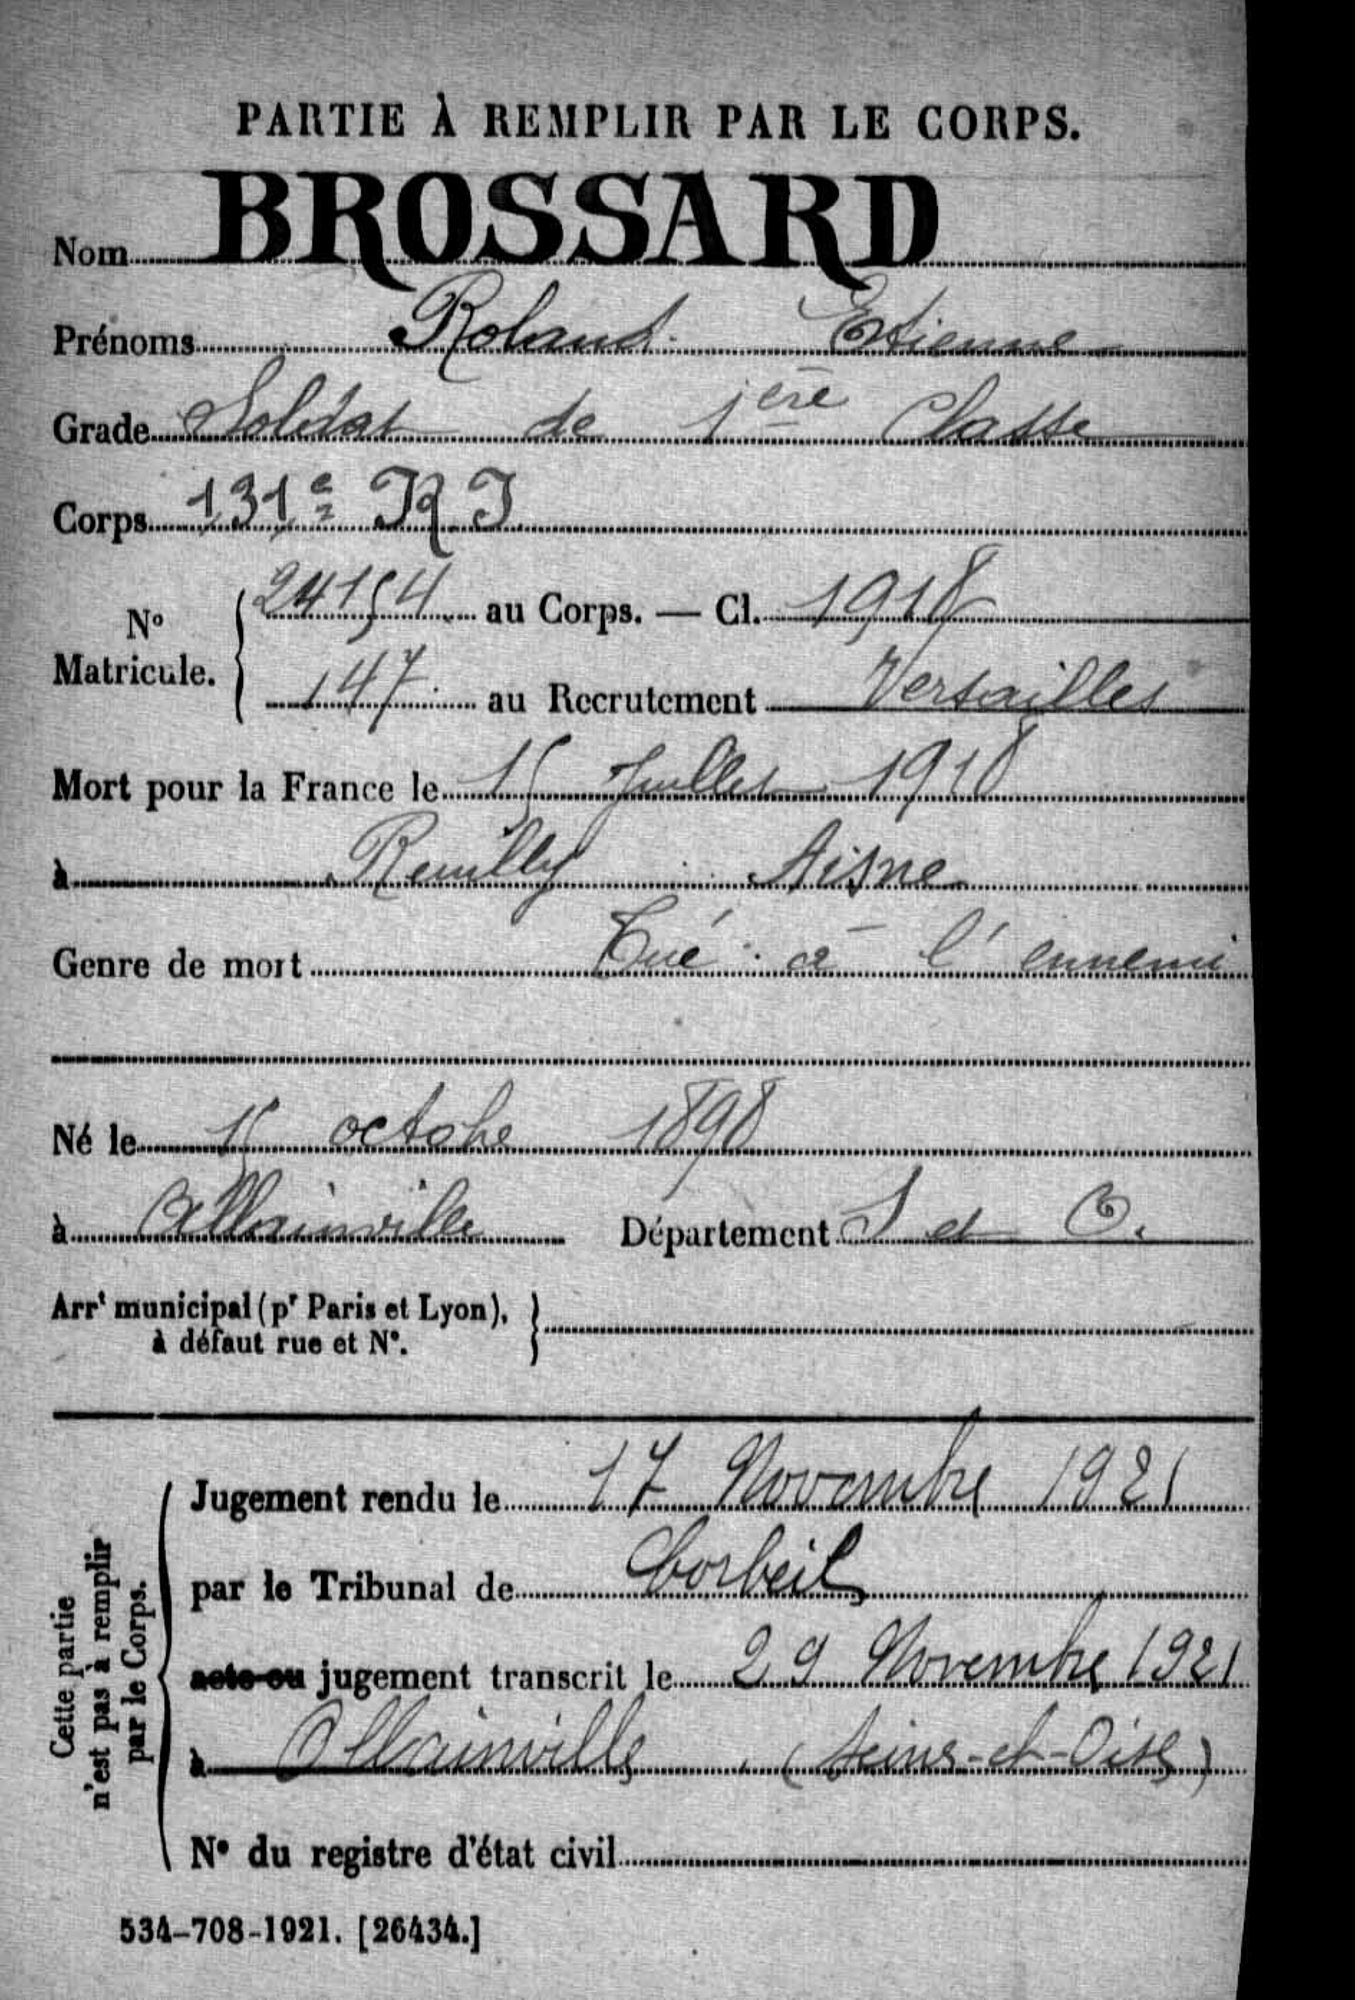 PARTIE À REMPLIR PAR LE CORPS.
Nom BROSSARD
Prénoms Roland Etienne
Grade Soldat de 1ère Classe
Corps 131e R I
N° Matricule. 24154 au Corps. — Cl. 1918
147 au Recrutement Versailles
Mort pour la France le 15 Juillet 1918
à Reuilly Aisne
Genre de mort Tué à l'ennemi
Né le 15 octobre 1898
à Ollainville Département S et O.
Arrt municipal (pr Paris et Lyon),
à défaut rue et N°.
Cette partie n'est pas à remplir par le Corps.
Jugement rendu le 17 Novembre 1921
par le Tribunal de Corbeil
acte ou jugement transcrit le 29 Novembre 1921
à Ollainville (Seine-et-Oise)
N° du registre d'état civil
534-708-1921. [26434.]